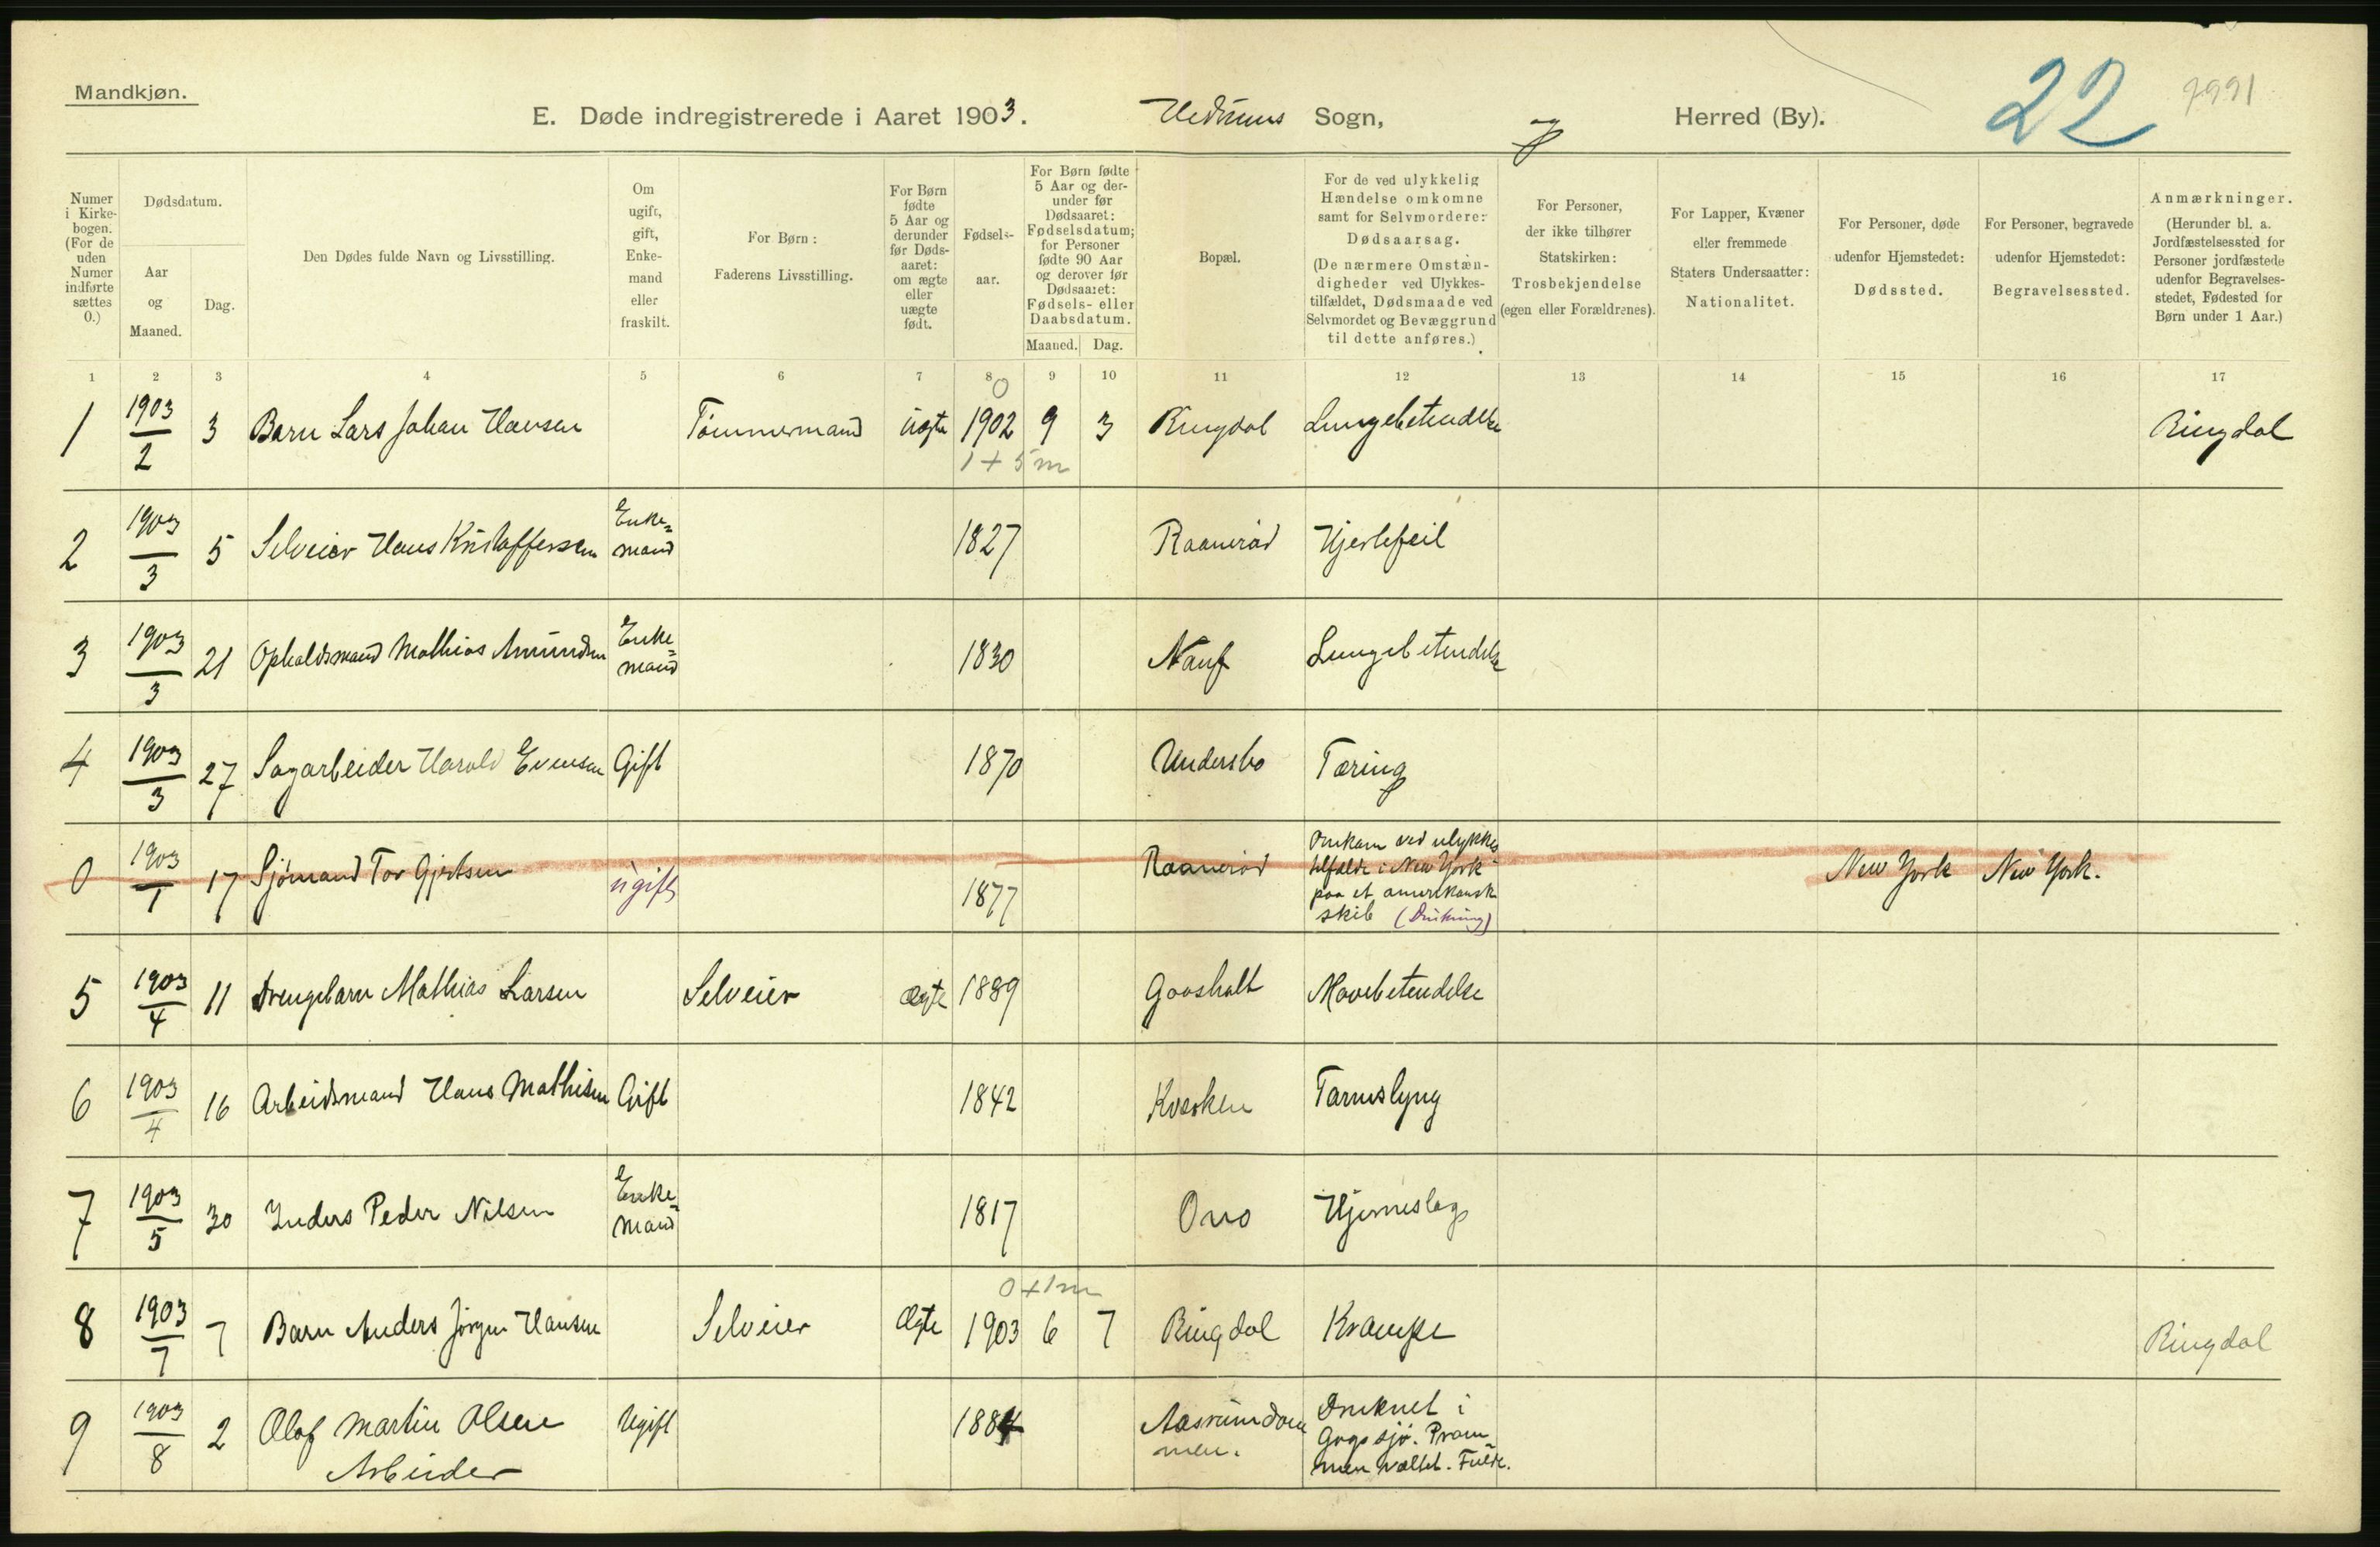 Mandkjøn.
E. Døde indregistrerede i Aaret 1903. Hedrums Sogn, Herred (By). 22 7991
Numer i Kirkebogen. (For de uden Numer indførte sættes 0.)
Dødsdatum.
Aar og Maaned.
Dag.
Den Dødes fulde Navn og Livsstilling.
Om ugift, gift, Enkemand eller fraskilt.
For Børn: Faderens Livsstilling.
For Børn fødte 5 Aar og derunder før Dødsaaret: om ægte eller uægte født.
Fødselsaar.
For Børn fødte 5 Aar og derunder før Dødsaaret: Fødselsdatum; for Personer fødte 90 Aar og derover før Dødsaaret: Fødsels- eller Daabsdatum.
Maaned. Dag.
Bopæl.
For de ved ulykkelig Hændelse omkomne samt for Selvmordere: Dødsaarsag. (De nærmere Omstændigheder ved Ulykkestilfældet, Dødsmaade ved Selvmordet og Bevæggrund til dette anføres.)
For Personer, der ikke tilhører Statskirken: Trosbekjendelse (egen eller Forældrenes).
For Lapper, Kvæner eller fremmede Staters Undersaatter: Nationalitet.
For Personer, døde udenfor Hjemstedet: Dødssted.
For Personer, begravede udenfor Hjemstedet: Begravelsessted.
Anmærkninger. (Herunder bl. a. Jordfæstelsessted for Personer jordfæstede udenfor Begravelsesstedet, Fødested for Børn under 1 Aar.)
1 2 3 4 5 6 7 8 9 10 11 12 13 14 15 16 17
0
1 1903/2 3 Barn Lars Johan Hansen Tömmermand Ægte 1902 9 3 Ringdal Lungebetendelse Ringdal
1 + 5 m
2 1903/3 5 Selveier Hans Kristoffersen Enke= mand 1827 Raaneröd Hjertefeil
3 1903/3 21 Opholdsmand Mathias Amundsen Enke= mand 1830 Nauf Lungebetendelse
4 1903/3 27 Sagarbeider Harald Evensen Gift 1870 Undersbo Tæring
0 1903/1 17 Sjömand Tor Gjertsen ugift 1877 Raaneröd Omkom ved ulykkes tilfælde i New York paa et amerikansk skib (Drukning) New York New York.
5 1903/4 11 Drengebarn Mathias Larsen Selveier Ægte 1889 Gaasholt Mavebetendelse
6 1903/4 16 Arbeidsmand Hans Mathisen Gift 1842 Kvesken Tarmslyng
7 1903/5 30 Inders Peder Nilsen Enke= mand 1817 Ono Hjerneslag
0 + 1 m
8 1903/7 7 Barn Anders Jörgen Hansen Selveier Ægte 1903 6 7 Ringdal Krampe Ringdal
9 1903/8 2 Olaf Martin Olsen Ugift 1884 Aasrumdammen. Druknet i Gogsjö. Pram= men væltet. Fulde.
Arbeider